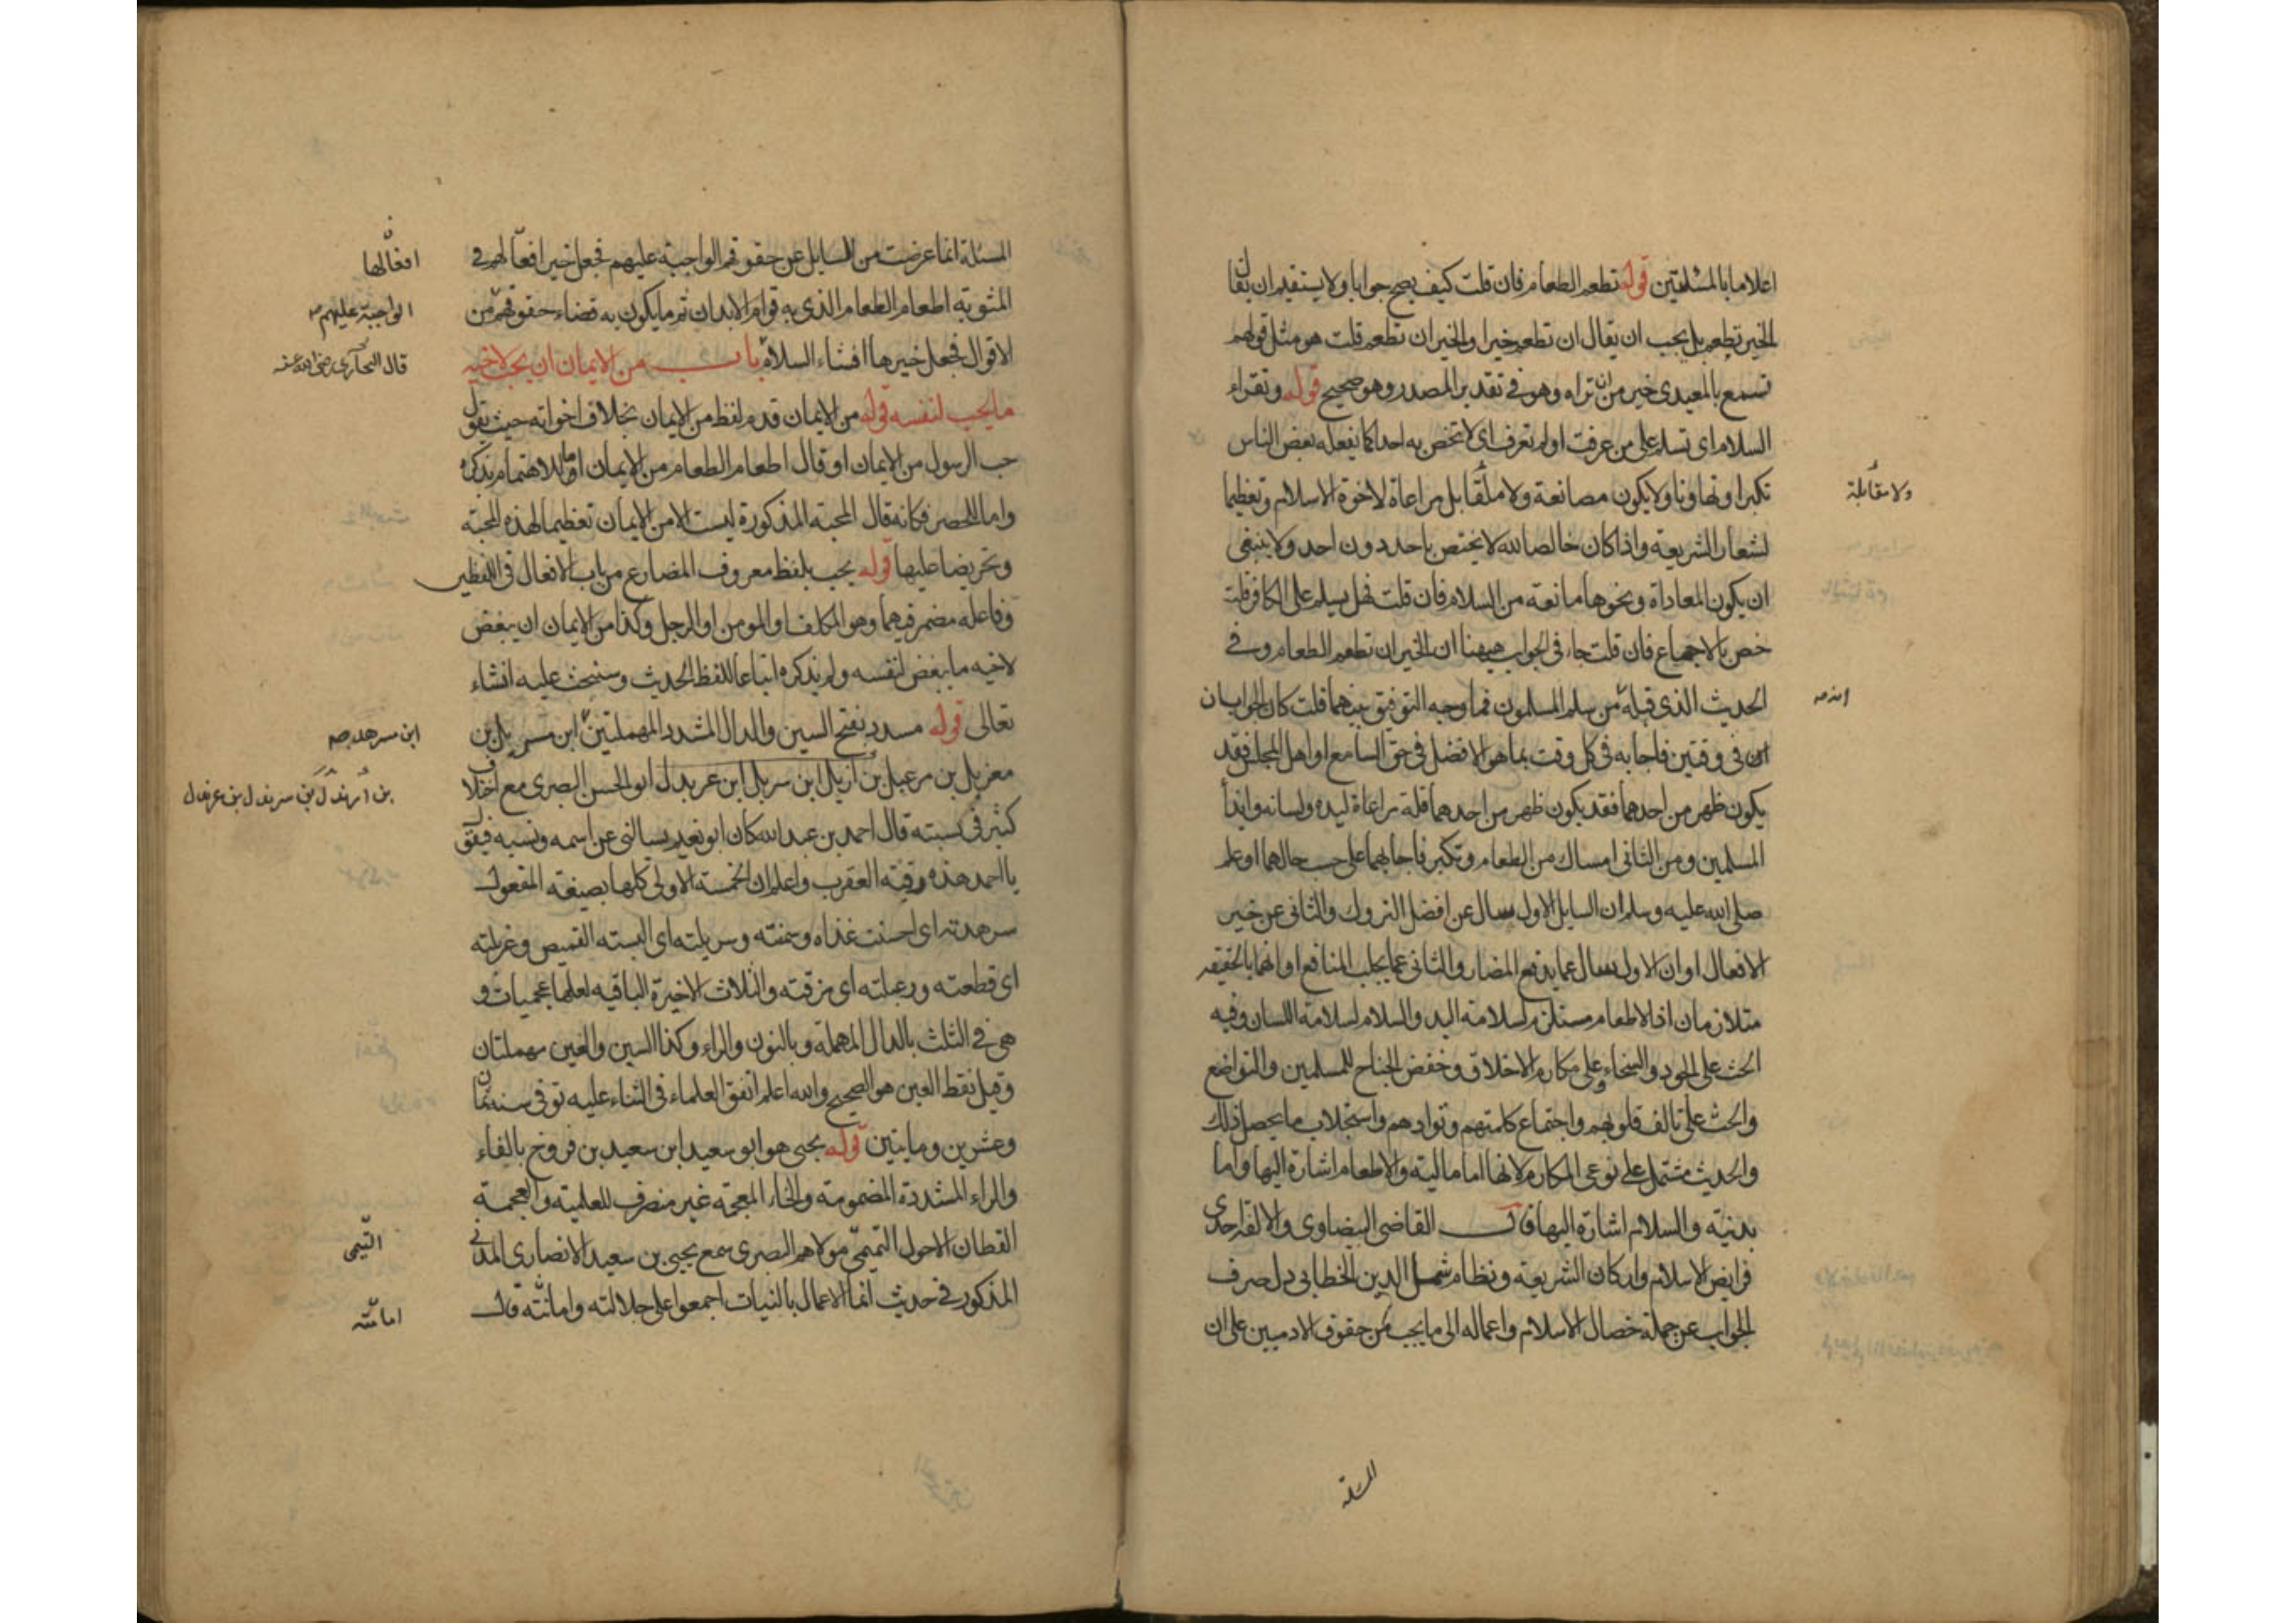 اعلاما بالمسئلتين قوله تطعم الطعام فان قلت كيف يصح جوابا ولا يستقيم ان يقال ان
الخير تطعم بل يجب ان يقال ان تطعم خيرا والخير ان تطعم قلت هو مثل قولهم
تسمع بالمعيدى خير من ان تراه وهو فى تقدير المصدر وهو صحيح قوله وتقراء
السلام اى تسلم على من عرفت او لم تعرف اى لا تخص به احدا كما يفعله بعض الناس
تكبرا وتهاونا ولا يكون مصانعة ولا ملقا بل مراعاة لاخوة الاسلام وتعظيما
ولا مقابلة
لشعار الشريعة واذا كان خالصا لله لا يختص باحد دون احد ولا ينبغى
ان يكون المعاداة ونحوها مانعة من السلام فان قلت فهل يسلم على الكافر قلت
خص بالاجماع فان قلت جاء فى الجواب هيهنا ان الخير ان تطعم الطعام وفى
الحديث الذى قبله من سلم المسلمون فما وجه التوفيق بينهما قلت كان الجوابان
فى وقتين فاجابه فى كل وقت بما هو الافضل فى حق السامع او اهل المجلس فقد
يكون ظهر من احدهما فقد يكون ظهر من احدهما قلة مراعاة ليده ولسانه وايذأ
المسلمين ومن الثانى امساك من الطعام وتكبر فاجابهما على حسب حالهما او علم
صلى الله عليه وسلم ان السايل الاول يسال عن افضل التروك والثانى عن خير
الافعال او ان الاول يسال عما يدفع المضار والثانى عما يجلب المنافع او انهما بالحقيقه
متلازمان اذ الاطعام مستلزم لسلامة اليد والسلام لسلامة اللسان وفيه
الحث على الجود والسخاء وعلى مكارم الاخلاق وخفض الجناح للمسلمين والتواضع
والحث على تالف قلوبهم واجتماع كلمتهم وتوادهم واستجلاب ما يحصل ذلك
والحديث مشتمل على نوعى المكارم لانها اما مالية والاطعام اشارة اليها واما
بدنية والسلام اشارة اليها قال القاضى البيضاوى والالفة احدى
فرايض الاسلام واركان الشريعة ونظام شمل الدين الخطابى دل صرف
الجواب عن جملة خصال الاسلام واعماله الى ما يجب من حقوق الادميين على ان
المسئلة
المسئلة انما عرضت من السايل عن حقوقهم الواجبة عليهم فجعل خير افعالهم فى
افعالها
المثوبة اطعام الطعام الذى به قوام الابدان ثم ما يكون به قضاء حقوقهم من
الواجبة عليهم
الاقوال فجعل خيرها افشاء السلام باب من الايمان ان يحب لاخيه
قال البخارى رضى الله عنه
ما يحب لنفسه قوله من الايمان قدم لفظ من الايمان بخلاف اخواته حيث يقول
حب الرسول من الايمان او قال اطعام الطعام من الايمان اما للاهتمام بذكره
واما للحصر فكانه قال المحبة المذكورة ليست الا من الايمان تعظيما لهذه المحبة
وتحريضا عليها قوله يحب بلفظ معروف المضارع من باب الافعال فى اللفظين
وفاعله مضمر فيهما وهو المكلف او المومن او الرجل وكذا من الايمان ان يبغض
لاخيه ما يبغض لنفسه ولم يذكره اتباعا للفظ الحديث وسنبحث عليه انشاء
تعالى قوله مسدد بفتح السين والدال المشدد المهملتين ابن مسربل بن
ابن مسرهد صح
مغربل بن مرعبل بن ارندل ابن سرندل ابن عرندل ابو الحسن البصرى مع اختلاف
بن ارندل بن سرندل بن عرندل
كثير فى نسبته قال احمد بن عبد الله كان ابو نعيم يسالنى عن اسمه ونسبه فيقول
يا احمد هذه رقية العقرب واعلم ان الخمسة الاولى كلها بصيغة المفعول
سرهدته اى احسنت غذاه وسمنته وسربلته اى البسته القميص وغربلته
اى قطعته ورعبلته اى مزقته والثلاث الاخيرة الباقيه لعلها عجميات و
هى فى الثلث بالدال المهملة وبالنون والراء وكذا السين والعين مهملتان
وقيل نقط العين هو الصحيح والله اعلم اتفق العلماء فى الثناء عليه توفى سنه ثمان
وعشرين وماتين قوله يحيى هو ابو سعيد ابن سعيد بن فروخ بالفاء
والراء المشددة المضمومة والخاء المعجمة غير منصرف للعلمية والعجمة
القطان الاحول التميمى مولاهم البصرى سمع يحيى بن سعيد الانصارى المدنى
التيمى
المذكور فى حديث انما الاعمال بالنيات اجمعوا على جلالته وامانته قال
امامته